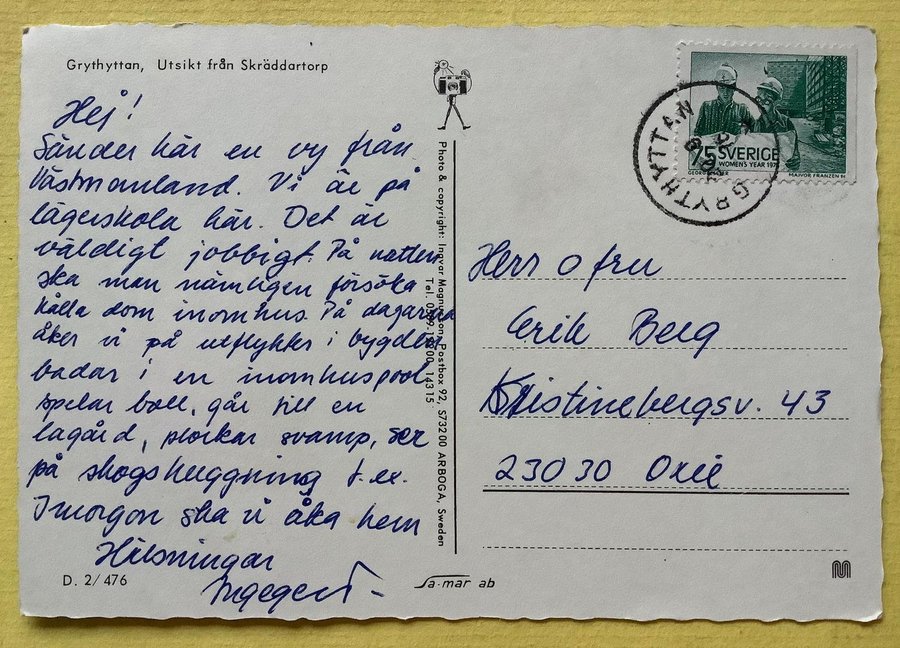 Grythyttan, Utsikt från Skräddartorp
Hej!
Sänder här en vy från
Västmanland. Vi är på
lägerskola här. Det är
väldigt jobbigt. På natten
ska man nämligen försöka
hålla dom inomhus. På dagarna
åker vi på utflykter i bygden
badar i en inomhuspool
spelar boll, går till en
lagård, plockar svamp, ser
på skogshuggning t.ex.
Imorgon ska vi åka hem
Hälsningar
Ingegerd
D. 2/476
Photo & copyright: Ingvar Magnusson, Postbox 92, S73200 ARBOGA, Sweden
Sa-mar ab
GRYTHYTTAN
75 SVERIGE
WOMEN'S YEAR
MAJVOR FRANZÉN
Herr o fru
Erik Berg
Kristinebergsv. 43
23030 Oxie